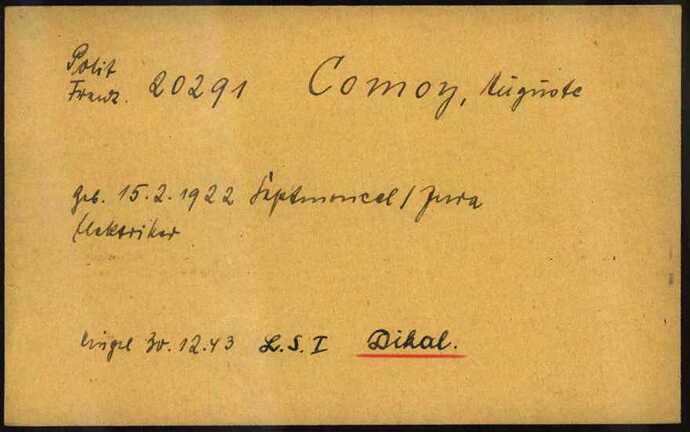 Polit
Franz. 20291 Comoy, Auguste
geb. 15.2.1922 Septmoncel/Jura
Elektriker
30.12.43 L.S.I Dikal.